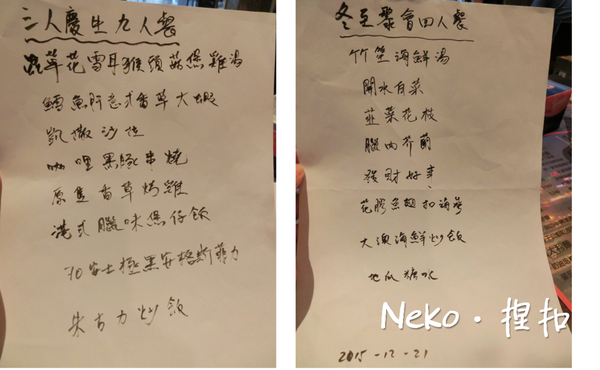 三人慶生九人餐
蟲草花雪耳猴頭菇煲雞湯
鱈魚阿意式香草大蝦
凱撒沙律
咖哩黑豚串燒
原隻香草烤雞
港式臘味煲仔飯
70安士極黑安格斯菲力
朱古力炒飯
冬至聚會四人餐
竹笙海鮮湯
開水白菜
韮菜花枝
臘肉芥蘭
發財好事
花膠魚翅扣海參
大澳海鮮炒飯
地瓜糖水
2015-12-21
Neko·捏扣